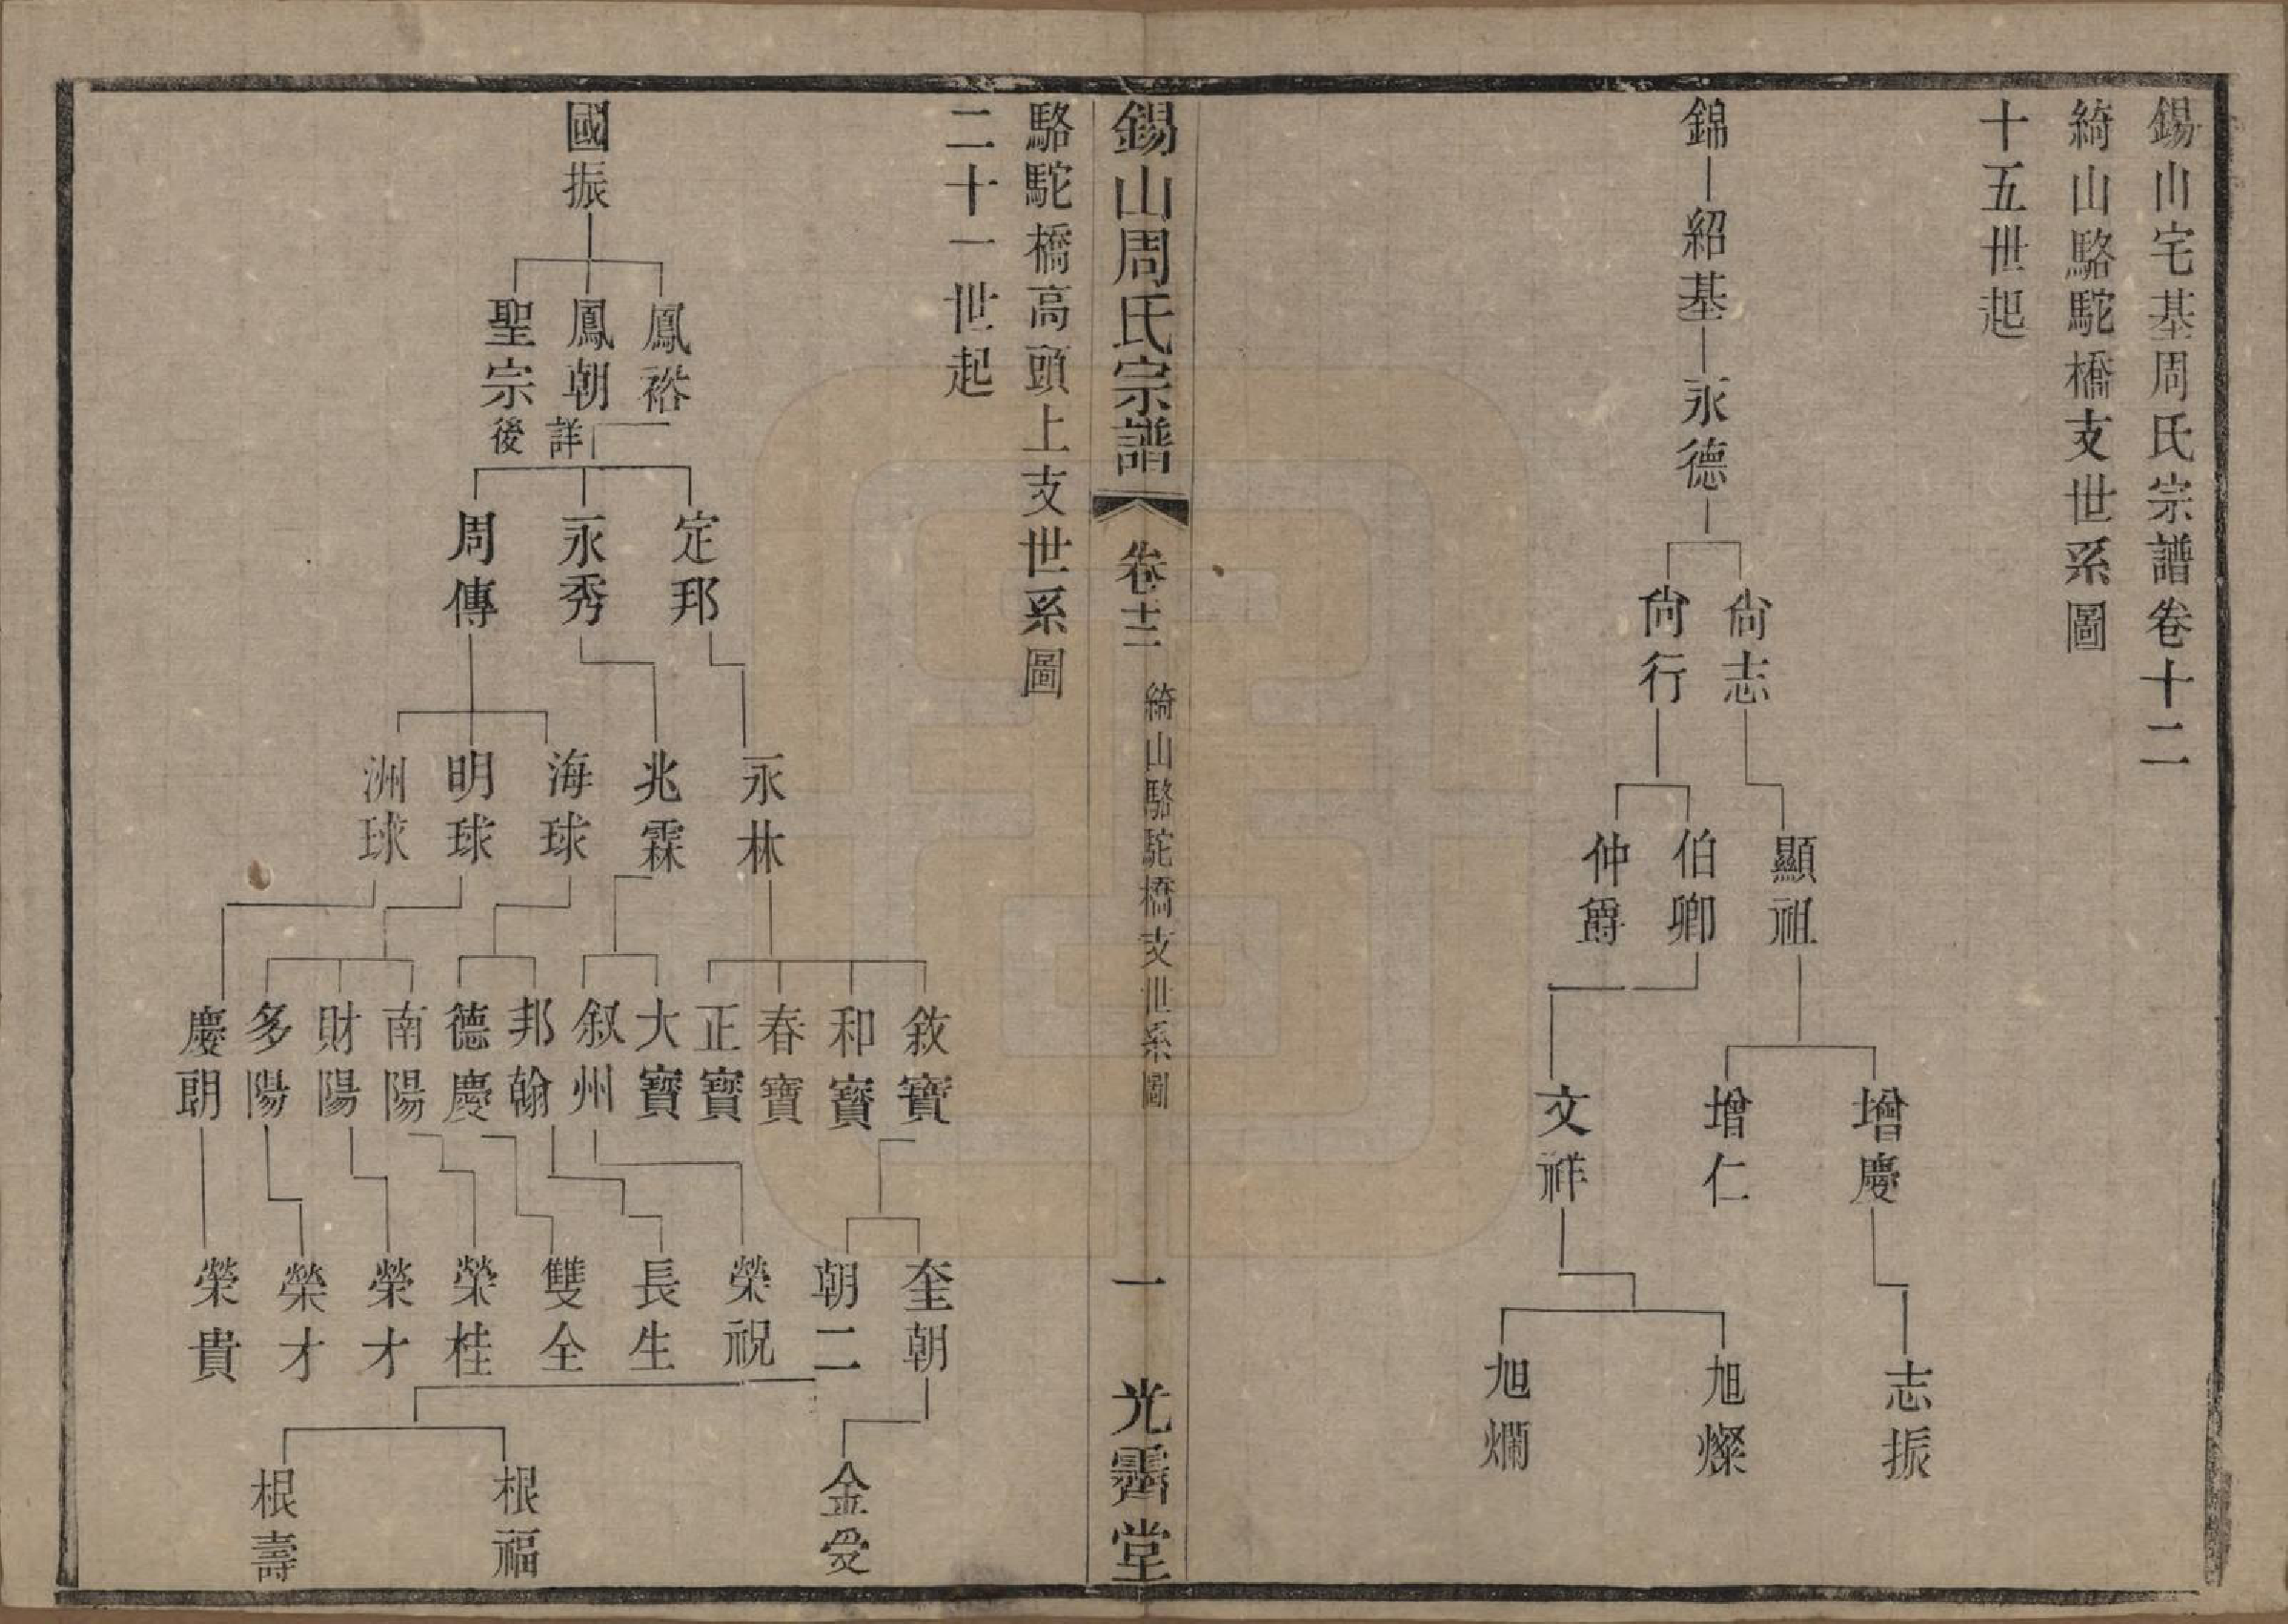 錫山宅基周氏宗譜卷十二
綺山駱駝橋支世系圖
十五世起
錦
紹基
永德
尙志
尙行
顯祖
伯卿
仲爵
增慶
增仁
文祥
志振
旭燦
旭爛
錫山周氏宗譜
卷十二
綺山駱駝橋支世系圖
一
光霽堂
駱駝橋高頭上支世系圖
二十一世起
國振
鳳裕
鳳朝
聖宗
詳後
定邦
永秀
周傳
永林
兆霖
海球
明球
洲球
敘寶
和寶
春寶
正寶
大寶
叙州
邦翰
德慶
南陽
財陽
多陽
慶朗
奎朝
朝二
榮祝
長生
雙全
榮桂
榮才
榮才
榮貴
金受
根福
根壽